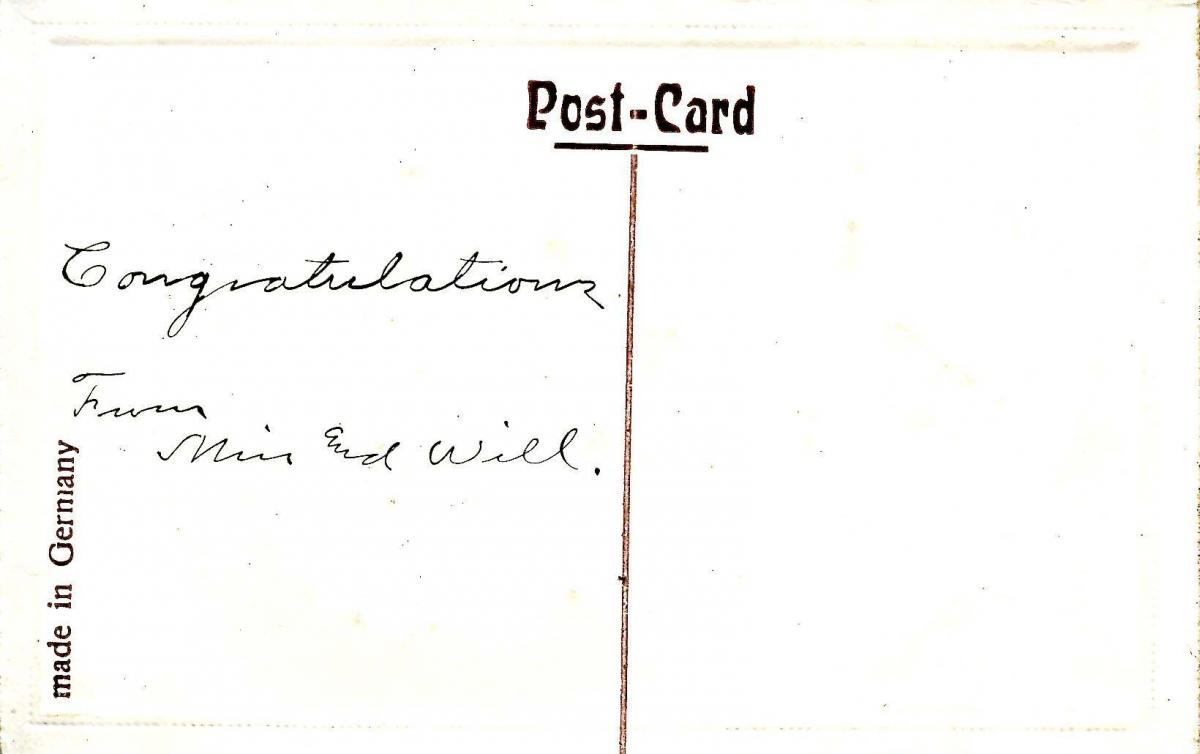 Post-Card
Congratulations
From
Miss End Will.
made in Germany